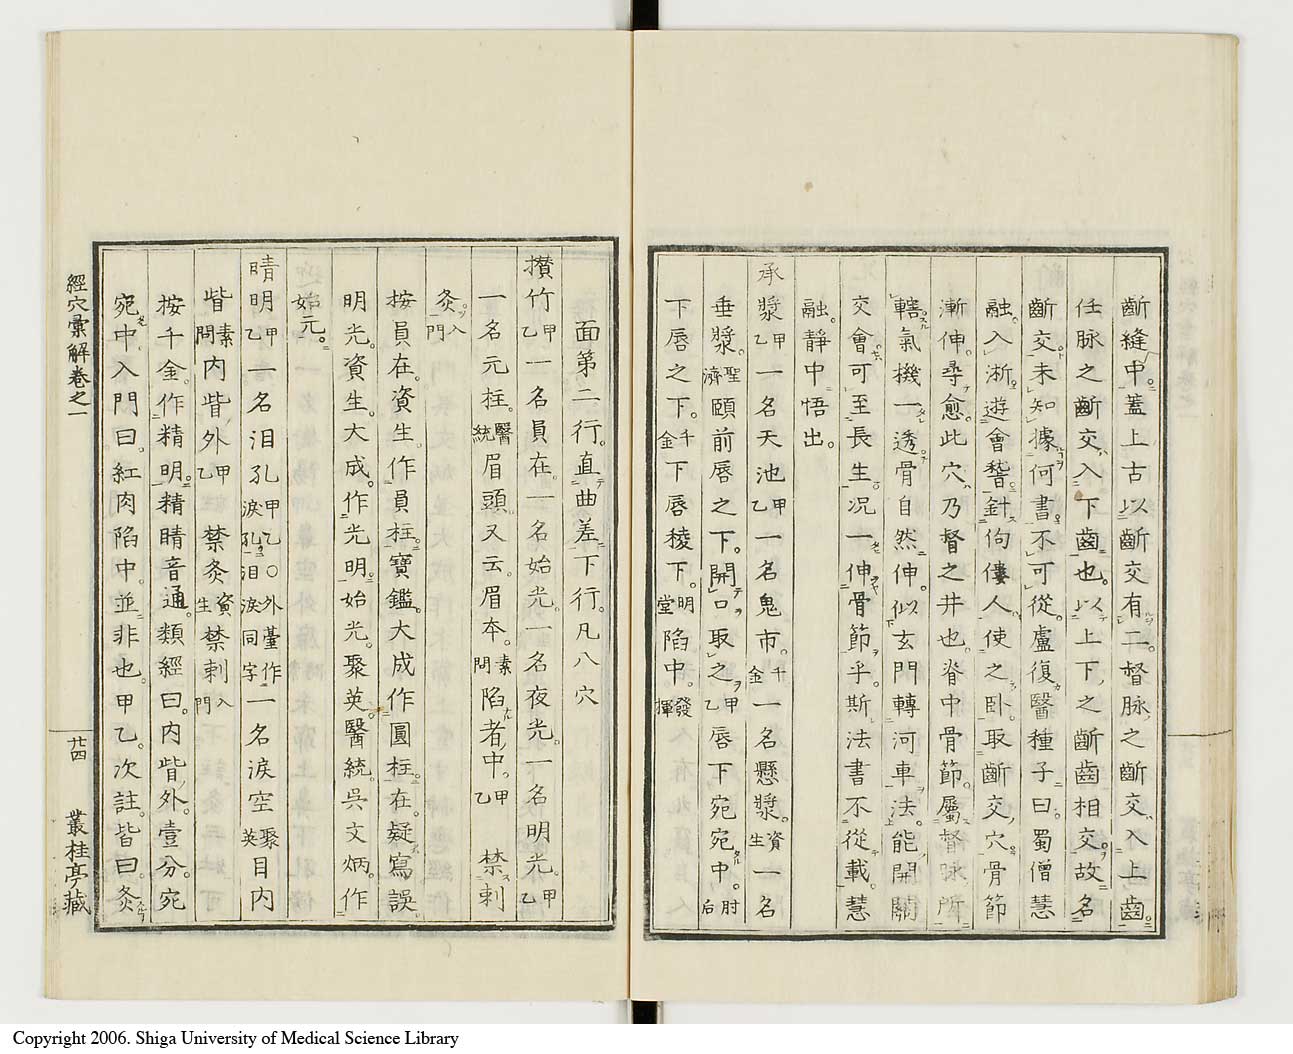 齗縫中蓋上古以齗交有二督脉之齗交入上齒
任脉之齗交入下齒也以上下之齗齒相交故名
齗交未知據何書不可從盧復醫種子曰蜀僧慧
融入浙遊會誓針佝僂人使之臥取齗交穴骨節
漸伸尋愈此穴乃督之井也脊中骨節屬督脉所
轄氣機一透骨自然伸似玄門轉河車法能開關
交會可至長生况一伸骨節乎斯法書不從載慧
融靜中悟出
承漿甲乙一名天池甲乙一名鬼市千金一名懸漿資生一名
垂漿聖濟頤前唇之下開口取之甲乙唇下宛宛中肘后
下唇之下千金下唇稜下明堂陷中發揮
面第二行直曲差下行凡八穴
攅竹甲乙一名員在一名始光一名夜光一名明光甲乙
一名元柱醫統眉頭又云眉本素問陷者中甲乙禁刺
灸入門
按員在資生作員柱寶鑑大成作圓柱在疑寫誤
明光資生大成作光明始光聚英醫統吳文炳作
始元
睛明甲乙一名泪孔甲乙〇外臺作淚孔泪淚同字一名淚空聚英目内
眥素問内眥外甲乙禁灸資生禁刺入門
按千金作精明精睛音通類經曰内眥外壹分宛
宛中入門曰紅肉陷中並非也甲乙次註皆曰灸
經穴彙解卷之一
廿四
叢桂亭藏
Copyright 2006. Shiga University of Medical Science Library